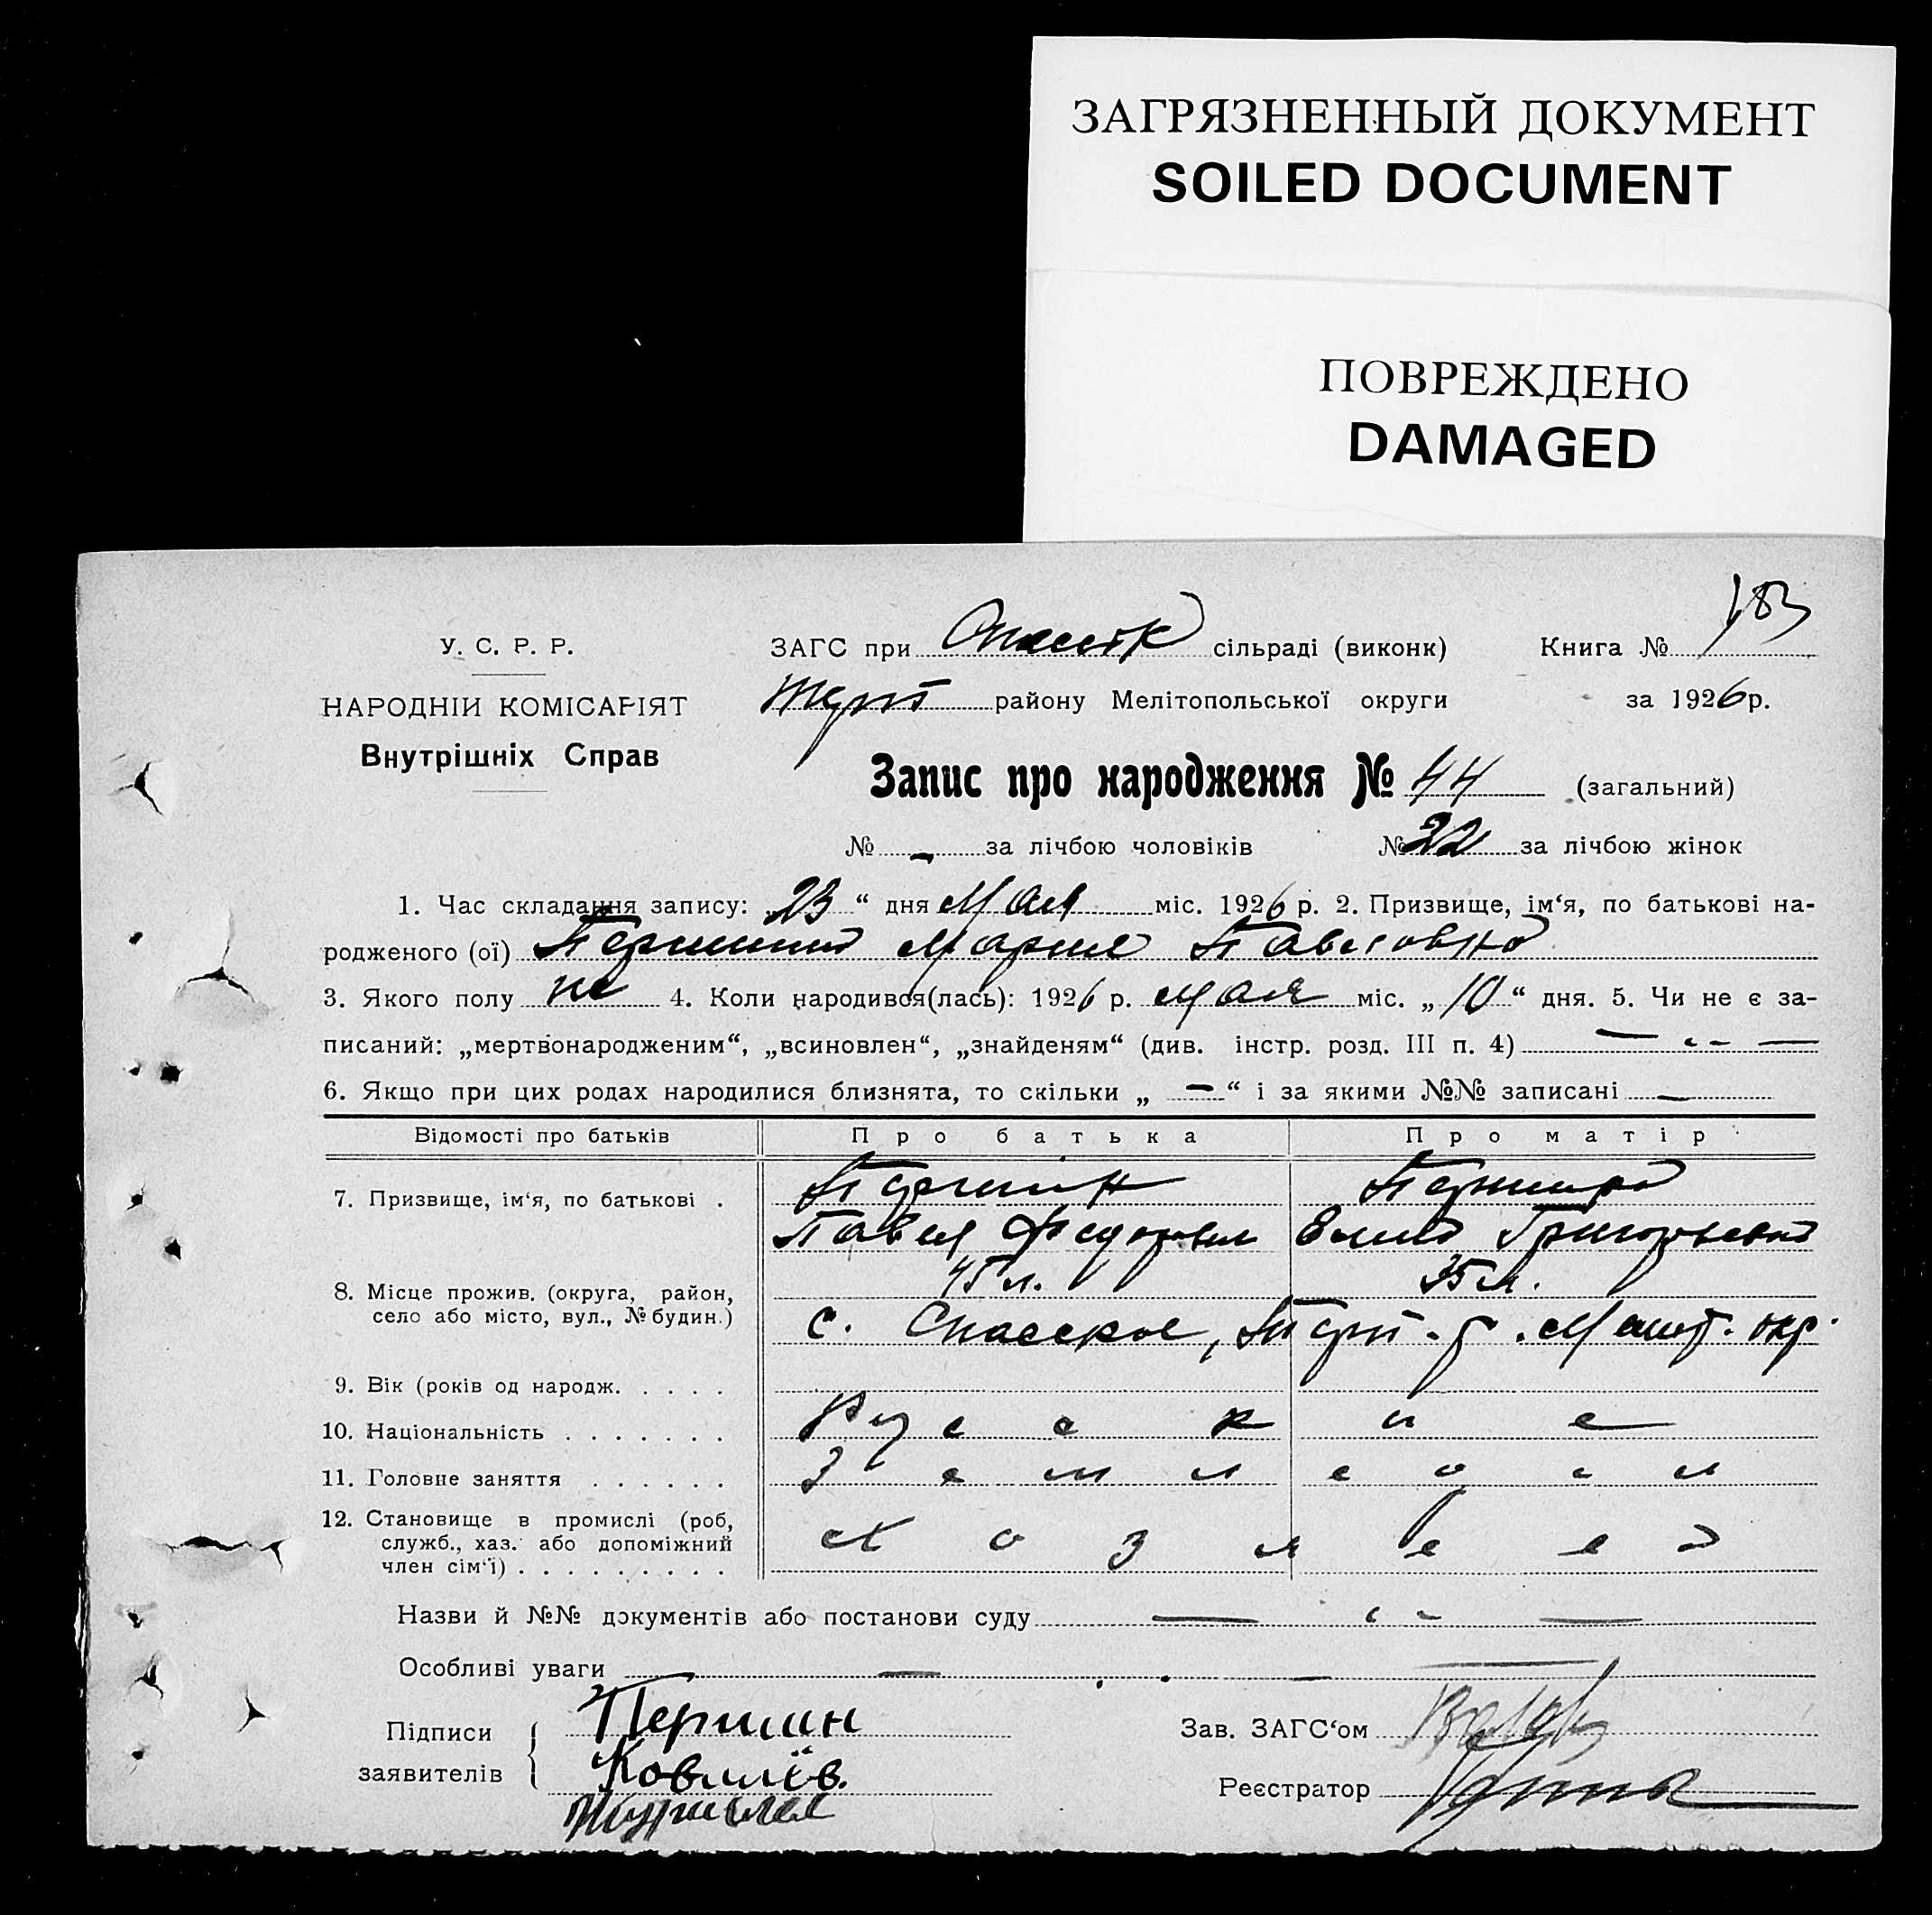 ЗАГРЯЗНЕННЫЙ ДОКУМЕНТ
SOILED DOCUMENT
ПОВРЕЖДЕНО
DAMAGED
183
У. С. Р. Р. ЗАГС при сільраді (виконк) Книга №
НАРОДНІЙ КОМІСАРІЯТ району Мелітопольської округи за 1926 р.
Внутрішніх Справ
Запис про народження № 44 (загальний)
№ - за лічбою чоловіків № 22 за лічбою жінок
1. Час складання запису: 23 “ дня Мая міс. 1926 р. 2. Призвище, ім‘я, по батькові на-
родженого (ої) Першина Мария Павловна
3. Якого полу 4. Коли народивоя(лась): 1926 р. мая міс. „ 10 “ дня. 5. Чи не є за-
писаний: „мертвонародженим“, „всиновлен“, „знайденям“ (див. інстр. розд. III п. 4) — „ —
6. Якщо при цих родах народилися близнята, то скільки „ — “ і за якими №№ записані —
Відомості про батьків Про батька Про матір
7. Призвище, ім‘я, по батькові . Першин Першина
Павел Федорович Григорьевна
45 л. 35 л.
8. Місце прожив. (округа, район,
село або місто, вул., № будин.) с. Спасское, Терп. р. Мелит. окр.
9. Вік (років од народж. . . . .
10. Національність . . . . . . . Русские
11. Головне заняття . . . . . . Земледел
12. Становище в промислі (роб,
служб., хаз. або допоміжний
член сім‘ї) . . . . . . . . . Хозяева
Назви й №№ документів або постанови суду — „ —
Особливі уваги —
Підписи Першин Зав. ЗАГС‘ом
заявителів Реєстратор